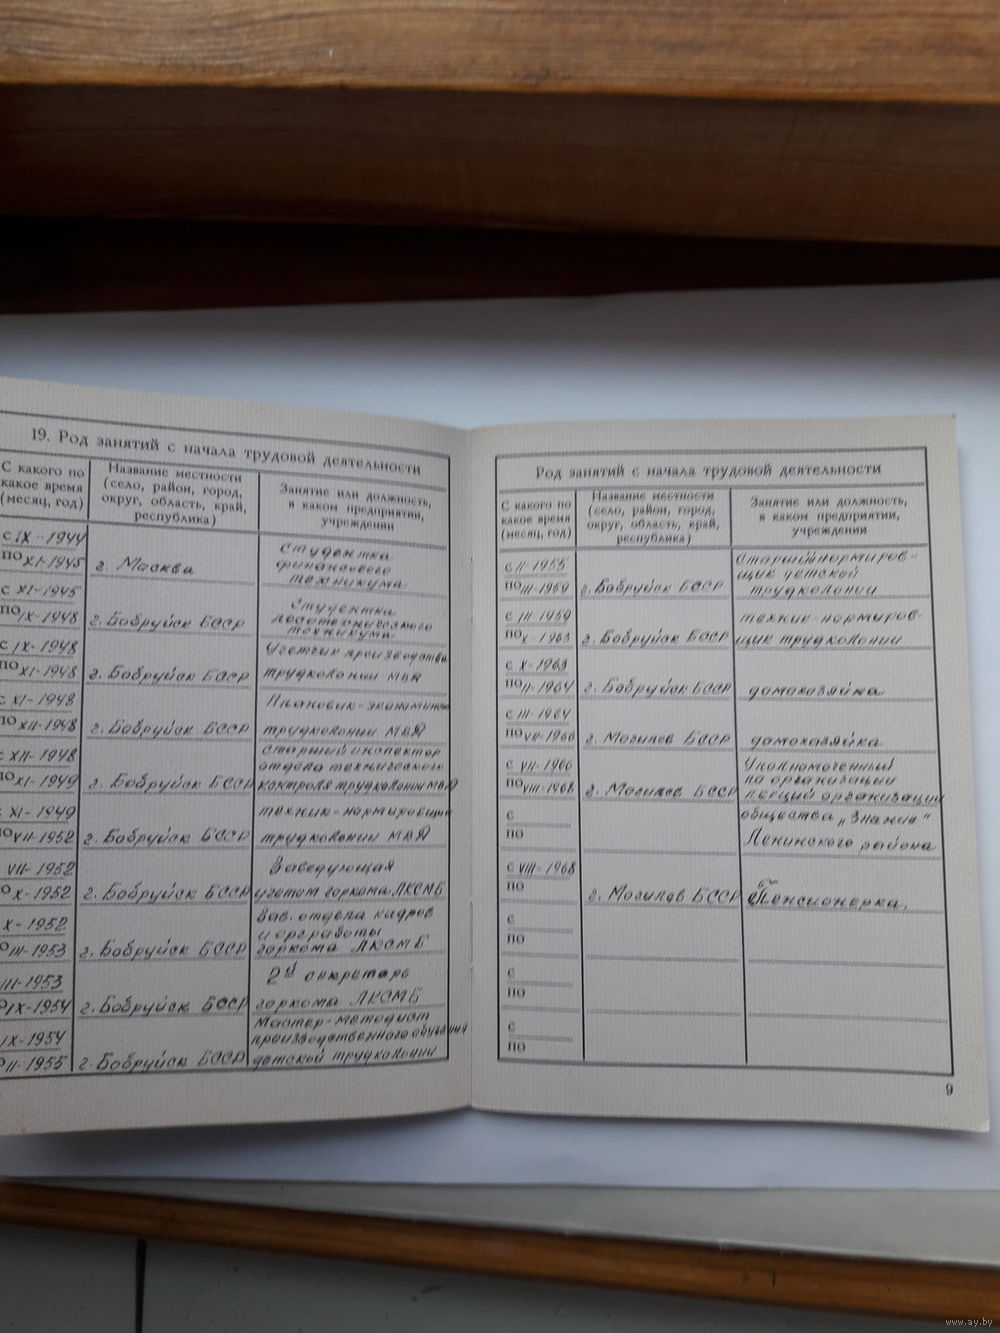 19. Род занятий с начала трудовой деятельности
С какого по какое время (месяц, год)
Название местности (село, район, город, округ, область, край, республика)
Занятие или должность, в каком предприятии, учреждении
с IX-1944
по XI-1945
г. Москва
Студентка
финансового
техникума
с XI-1945
по IX-1948
г. Бобруйск БССР
Студентка
лесотехнического
техникума
с IX-1948
по XI-1948
г. Бобруйск БССР
Учетчик производства
трудколонии МВД
с XI-1948
по XII-1948
г. Бобруйск БССР
Плановик-экономист
трудколонии МВД
с XII-1948
по XI-1949
г. Бобруйск БССР
старший инспектор
отдела технического
контроля трудколонии МВД
с XI-1949
по VII-1952
г. Бобруйск БССР
техник-нормировщик
трудколонии МВД
VII-1952
по X-1952
г. Бобруйск БССР
Заведующая
учетом горкома ЛКСМБ
X-1952
по III-1953
г. Бобруйск БССР
Зав. отдела кадров
и оргработы
горкома ЛКСМБ
III-1953
по IX-1954
г. Бобруйск БССР
2й секретарь
горкома ЛКСМБ
IX-1954
по II-1955
г. Бобруйск БССР
Мастер-методист
производственного обучения
детской трудколонии
Род занятий с начала трудовой деятельности
С какого по какое время (месяц, год)
Название местности (село, район, город, округ, область, край, республика)
Занятие или должность, в каком предприятии, учреждении
с II-1955
по III-1959
г. Бобруйск БССР
Старший нормиров-
щик детской
трудколонии
с III-1959
по X-1963
г. Бобруйск БССР
техник-нормиров-
щик трудколонии
с X-1963
по II-1964
г. Бобруйск БССР
домохозяйка
с III-1964
по VII-1966
г. Могилев БССР
домохозяйка
с VII-1966
по VIII-1968
г. Могилев БССР
Уполномоченный
по организации
лекций организации
с
по
общества „Знание"
Ленинского района
с VIII-1968
по
г. Могилев БССР
Пенсионерка.
с
по
с
по
с
по
9
www.ay.by